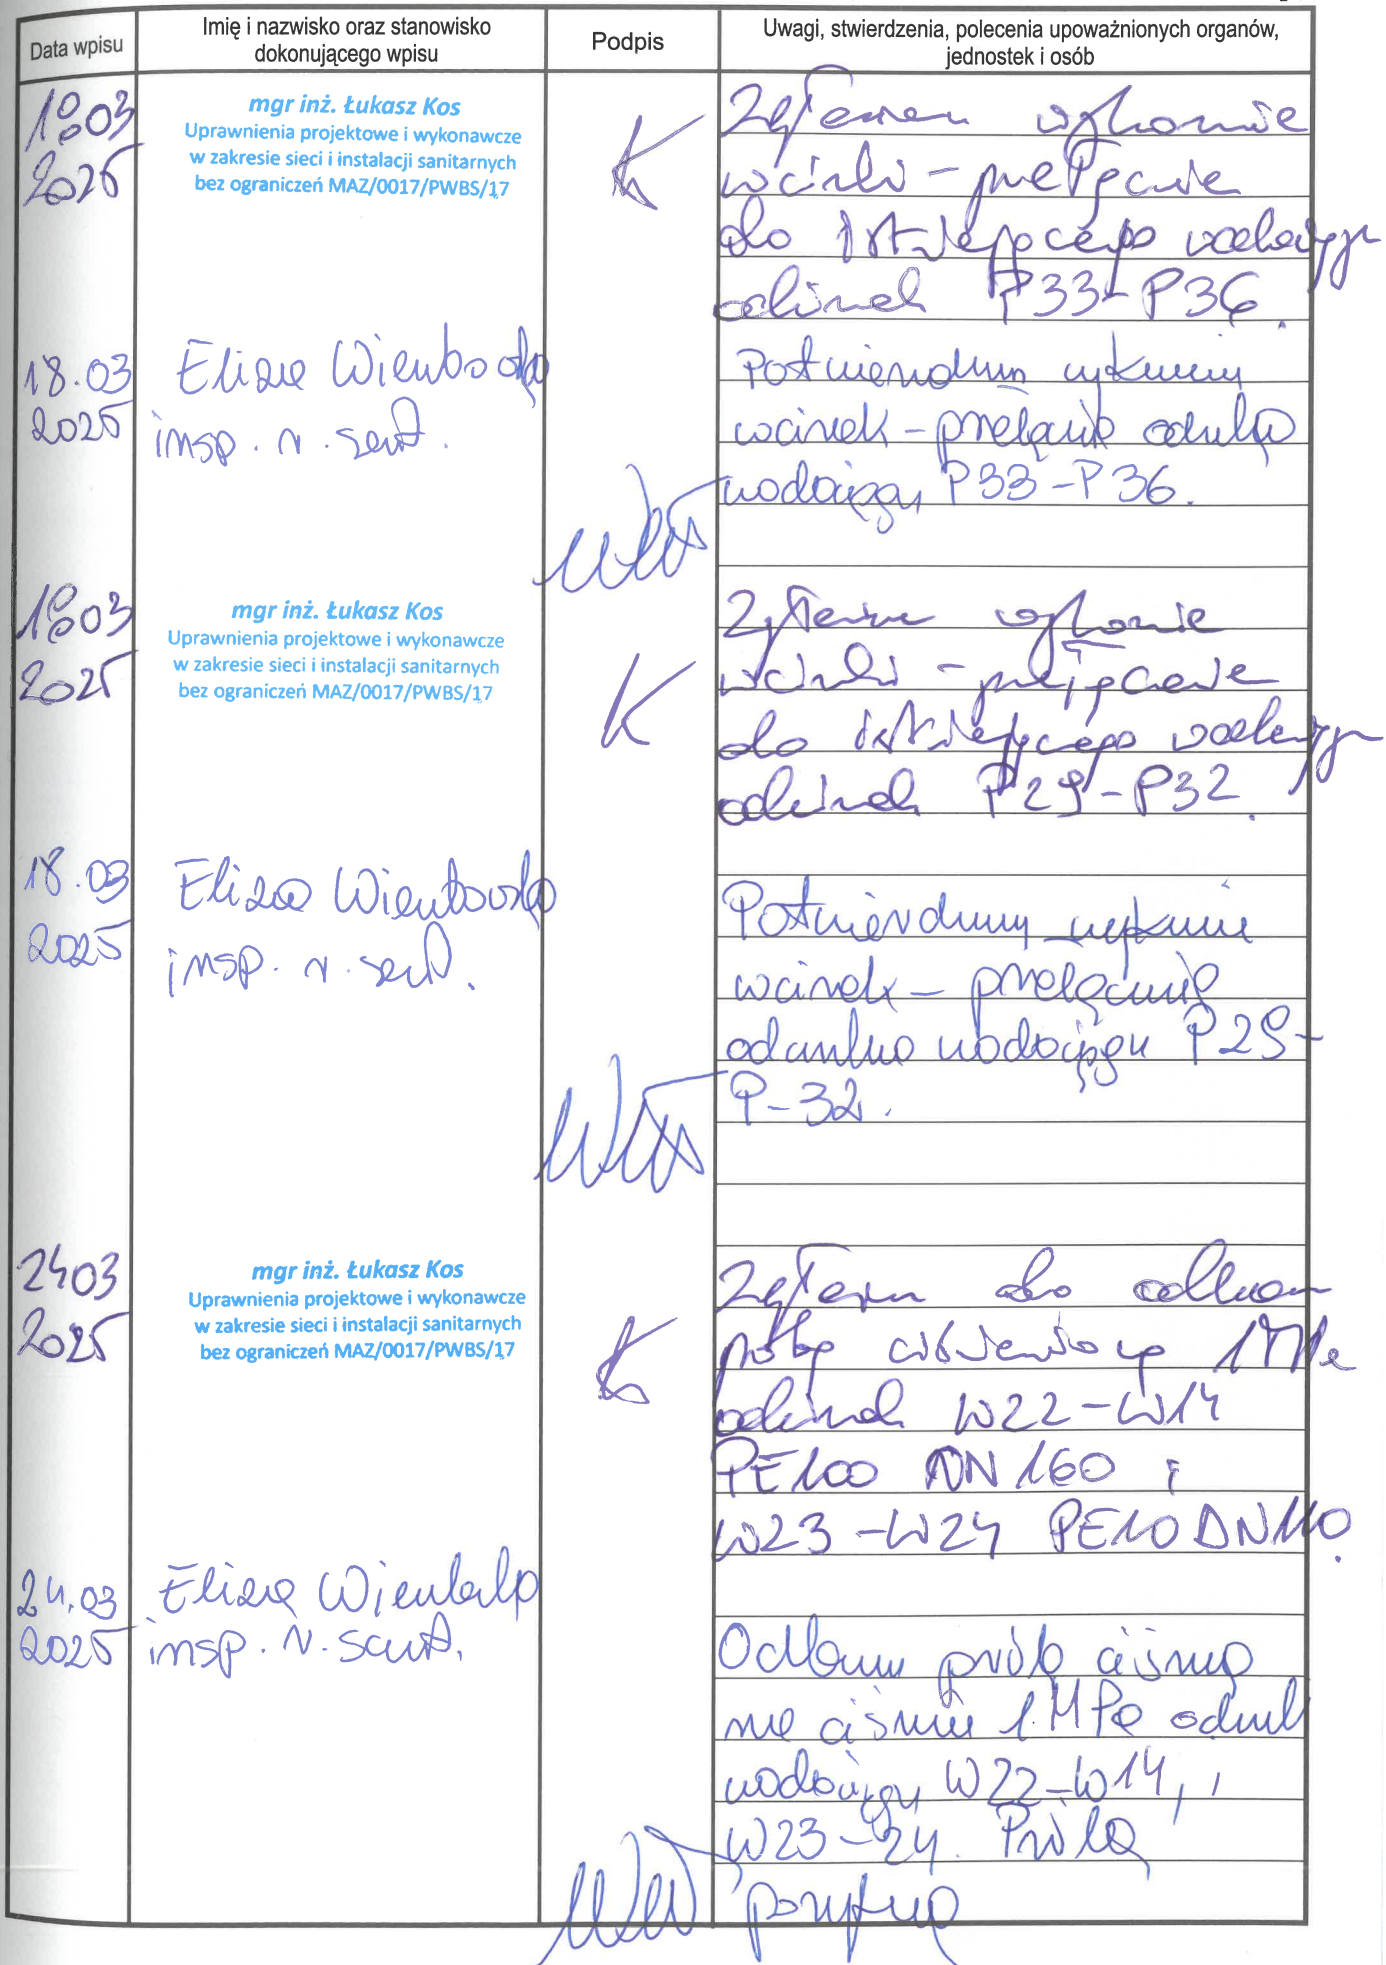 Data wpisu
Imię i nazwisko oraz stanowisko
dokonującego wpisu
Podpis
Uwagi, stwierdzenia, polecenia upoważnionych organów,
jednostek i osób
18.03
2025
mgr inż. Łukasz Kos
Uprawnienia projektowe i wykonawcze
w zakresie sieci i instalacji sanitarnych
bez ograniczeń MAZ/0017/PWBS/17
Zgłaszam wykonanie
wcinki - przełączenie
do istniejącego wodociągu
odcinek P33-P36.
18.03
2025
Eliza
insp. n. sanit.
Potwierdzam wykonanie
wcinek - przełączenie odcinka
wodociągu P33-P36.
18.03
2025
mgr inż. Łukasz Kos
Uprawnienia projektowe i wykonawcze
w zakresie sieci i instalacji sanitarnych
bez ograniczeń MAZ/0017/PWBS/17
Zgłaszam wykonanie
wcinki - przełączenie
do istniejącego wodociągu
odcinek P29-P32.
18.03
2025
Eliza
insp. n. sanit.
Potwierdzam wykonanie
wcinek - przełączenie
odcinka wodociągu P29-
P-32.
24.03
2025
mgr inż. Łukasz Kos
Uprawnienia projektowe i wykonawcze
w zakresie sieci i instalacji sanitarnych
bez ograniczeń MAZ/0017/PWBS/17
Zgłaszam do odbioru
próbę ciśnieniową 1MPa
odcinek W22-W14
PE100 DN160 i
W23-W24 PE100 DN110.
24.03
2025
Eliza
insp. n. sanit.
Odbiór prób ciśnien.
na ciśnienie 1MPa odcinek
wodociągu W22-W14, i
W23-24. Próba
pozytywna